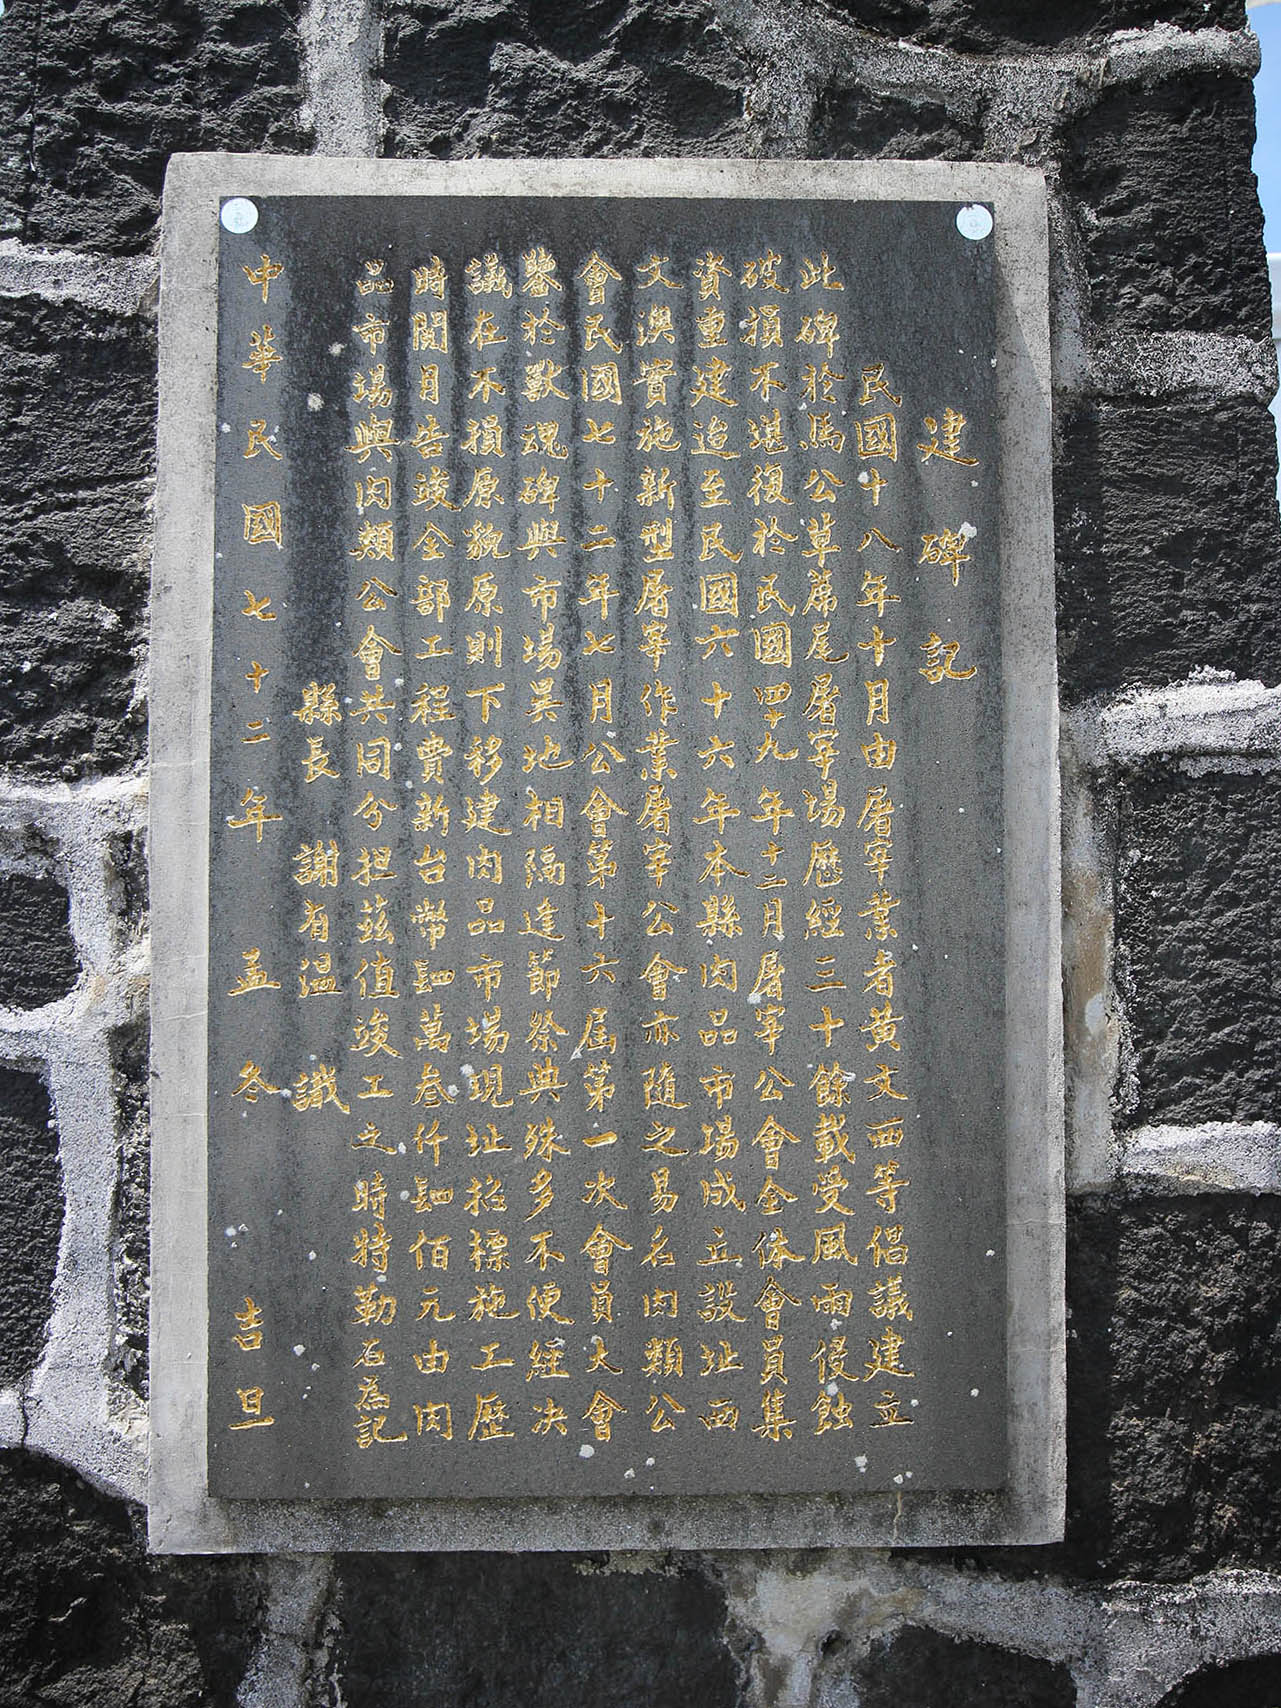 建碑記
民國十八年十月由屠宰業者黃文西等倡議建立
此碑於馬公草蓆尾屠宰場歷經三十餘載受風雨侵蝕
破損不堪復於民國四十九年十二月屠宰公會全体會員集
資重建迨至民國六十六年本縣肉品市場成立設址西
文澳實施新型屠宰作業屠宰公會亦隨之易名肉類公
會民國七十二年七月公會第十六屆第一次會員大會
鑒於獸魂碑與市場異地相隔逢節祭典殊多不便經決
議在不損原貌原則下移建肉品市場現址招標施工歷
時閱月告竣全部工程費新台幣肆萬叁仟肆佰元由肉
品市場與肉類公會共同分担茲值竣工之時特勒石為記
縣長 謝有温 識
中華民國七十二年 孟冬 吉旦